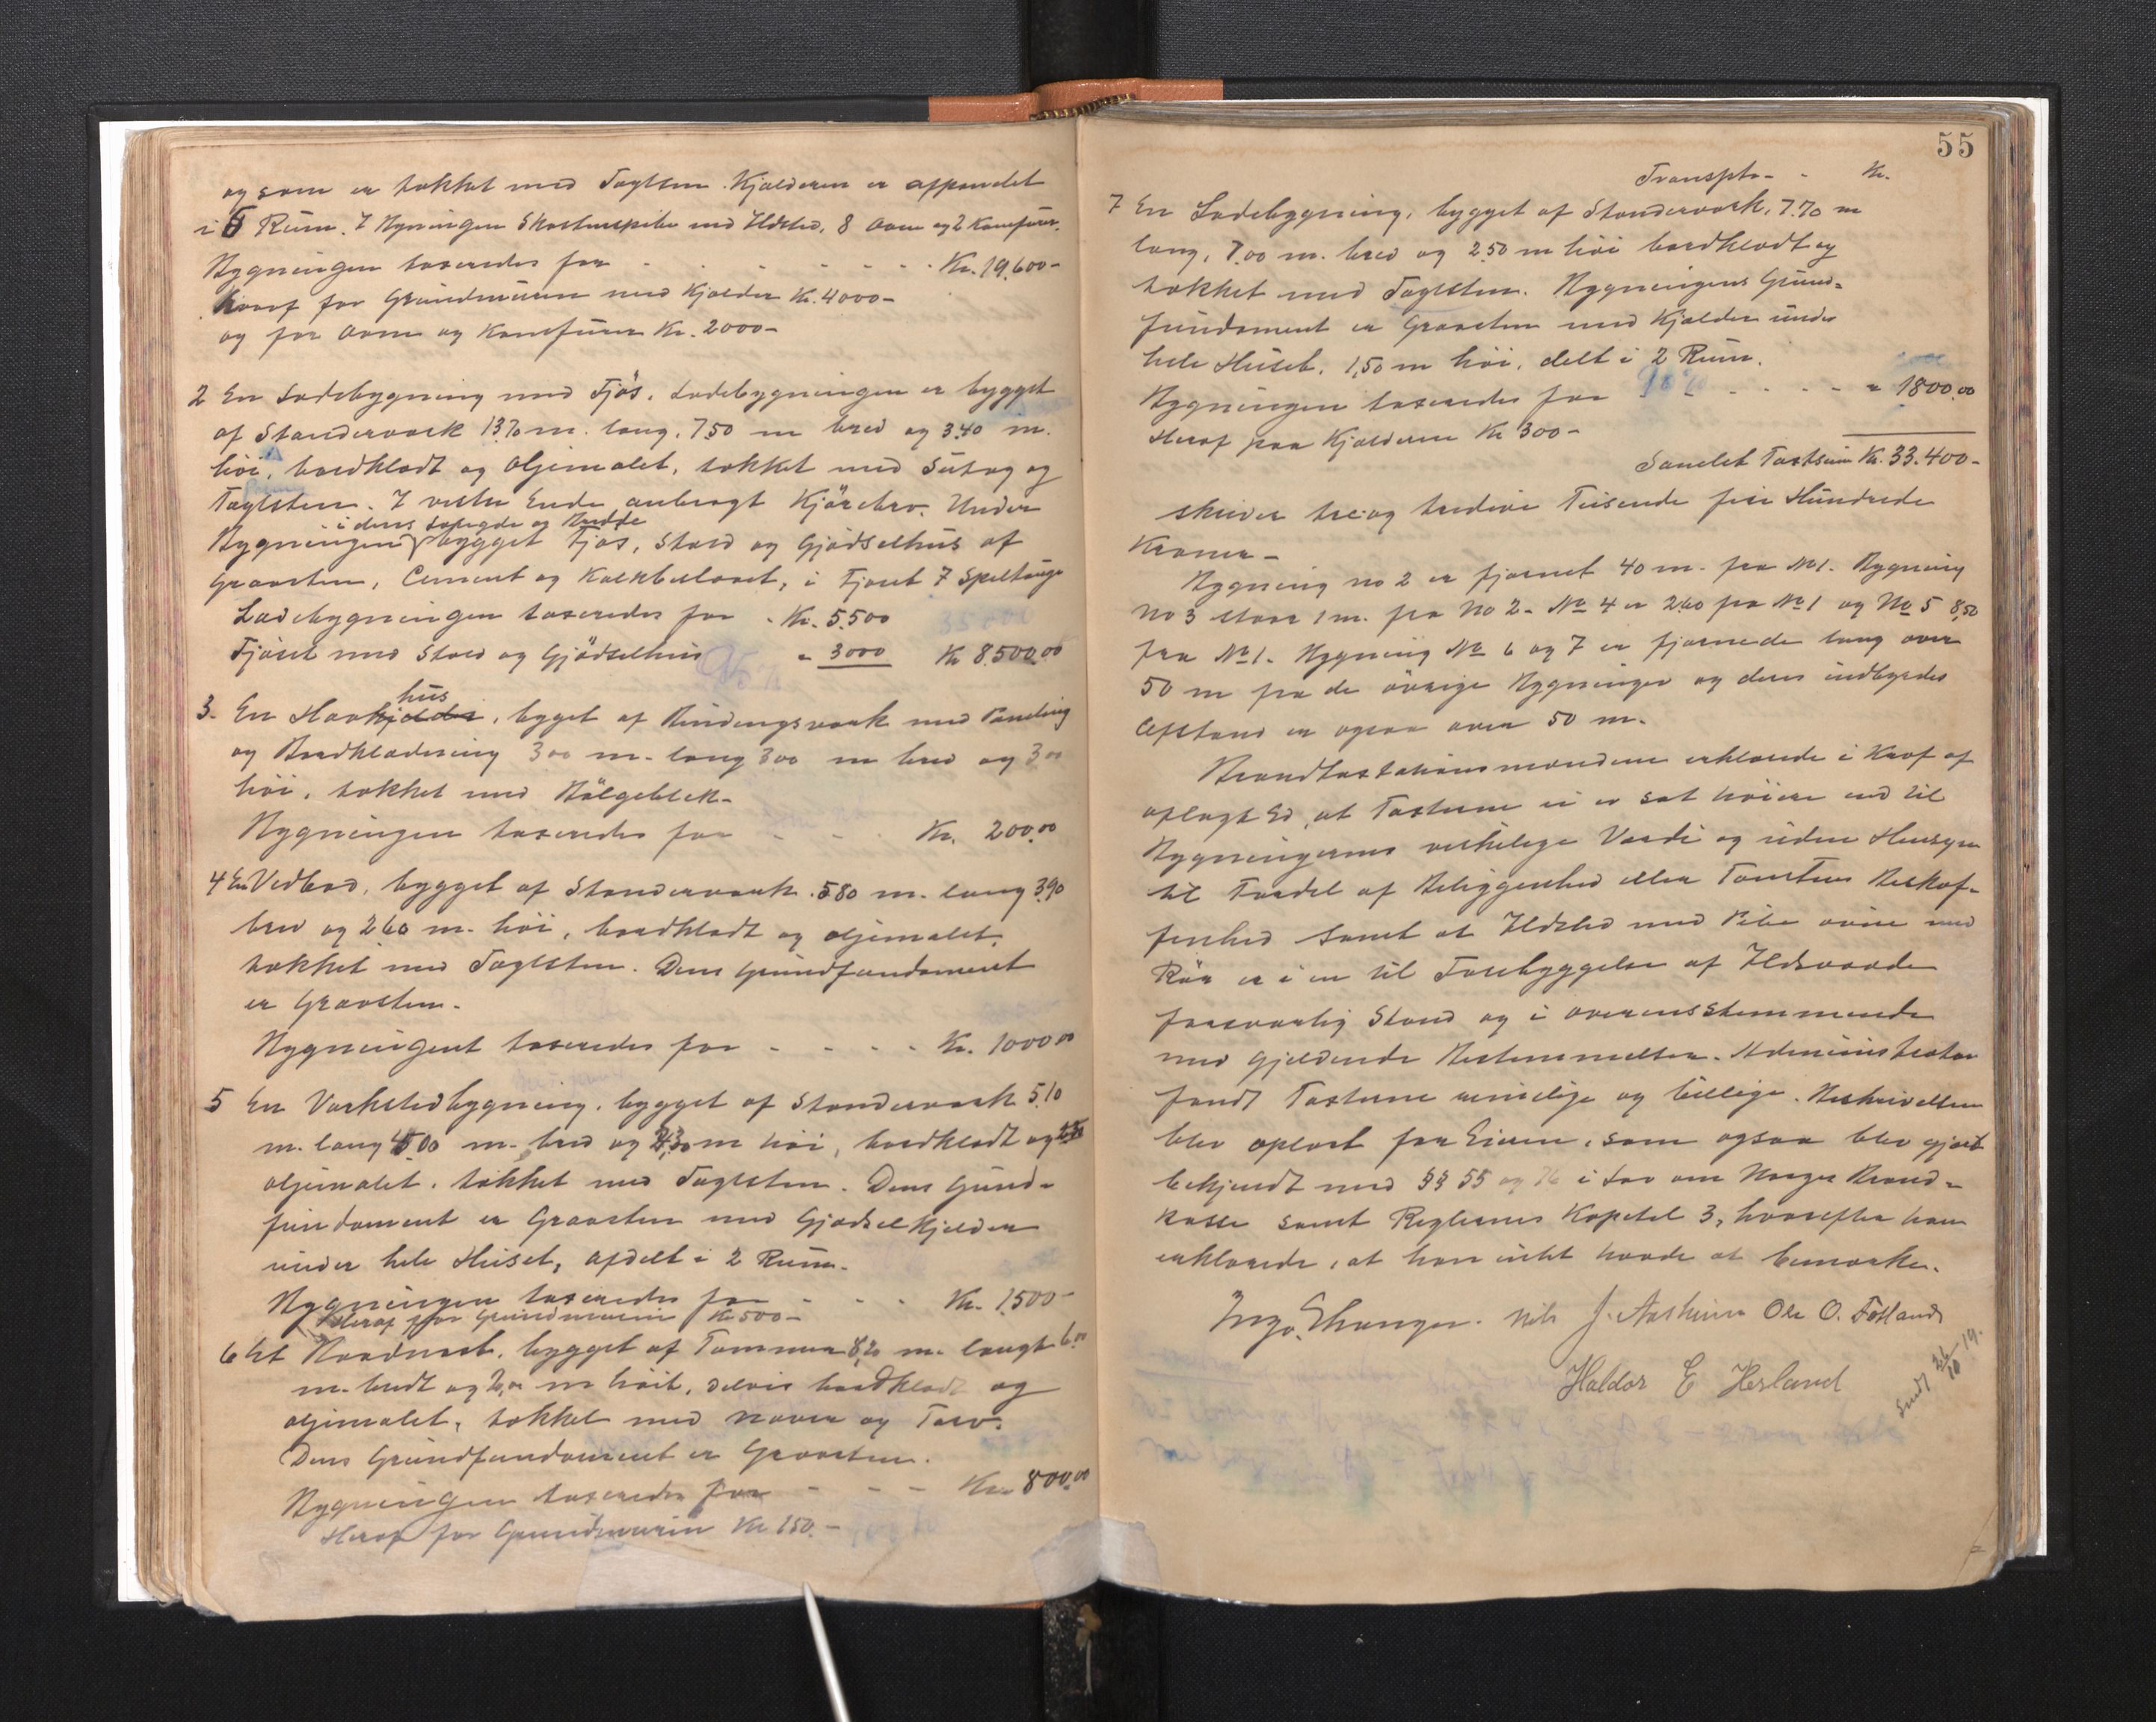 og som er tækket med Taglsten. Kjælderen er afpanelet
i 6 Rum. I Bygningen Skorstenspibe med Ildsted, 8 Ovne og 2 Komfurer.
Bygningen taxeredes for - - - - - - Kr. 19.600-
hvoraf for Grundmuren med Kjælder Kr. 4000-
og for Ovne og Komfurer Kr. 2000-
2 En Ladebygning med Fjøs. Ladebygningen er bygget
af Standerværk 13,70 m. lang, 7,50 m bred og 3,40 m.
høi, bordklædt og oljemalet, tækket med Sutag og
Taglsten. I vestre Ende anbragt Kjørebro. Under
i dens Længde og Bredde
Bygningen bygget Fjøs, Stald og Gjødselhus af
Graasten, Cement og Kalkbeslaaet, i Fjøset 7 Spiltaug
Ladebygningen taxeredes for - Kr. 5.500
Fjøset med Stald og Gjødselhus - 3000 Kr 8.500,00
hus
3. En Havkjælder, bygget af Bindingsværk med Paneling
og Bordklædning 3,00 m. lang 3,00 m bred og 3,00
høi, tækket med Bølgeblik-
Bygningen taxeredes for - - - Kr. 200,00
4 En Vedbod, bygget af Standerværk. 5,80 m. lang 3,90
bred og 2,60 m. høi, bordklædt og oljemalet,
tækket med Taglsten. Dens Grundfundament
er Graasten.
Bygningent taxeredes for - - - - Kr. 1000,00
5 En Værkstedbygning, bygget af Standerværk 5,10
m. lang 4,00 m. bred og 2,30 m høi, bordklædt og
oljemalet, tækket med Taglsten. Dens Grund-
fundament er Graasten med Gjødselkjælder
under hele Huset, afdelt i 2 Rum.
Bygningen taxeredes for - - - Kr. 1500-
Heraf for Grundmuren Kr 500-
6 Et Vaadnøst, bygget af Tømmer 8,20 m. langt 6,00
m. bredt og 2,00 m høit, delvis bordklædt og
oljemalet, tækket med Næver og Torv.
Dens Grundfundament er Graasten.
Bygningen taxeredes for - - - Kr. 800,00
Heraf for Grundmuren Kr 150.-
55
Transpt- - Kr.
7 En Ladebygning, bygget af Standerværk, 7,70 m
lang, 7,00 m. bred og 2,50 m høi bordklædt og
tækket med Taglsten. Bygningens Grund-
fundament er Graasten med Kjælder under
hele Huset, 1,50 m høi, delt i 2 Rum.
Bygningen taxeredes for - - - - " 1800,00
Heraf paa Kjælderen Kr 300-
Samlet Taxtsum Kr. 33.400-
skriver tre og tredive Tusende fire Hundrede
Kroner-
Bygning no 2 er fjernet 40 m. fra No 1. Bygning
No 3 staar 1 m. fra No 2- No 4 er 2,60 fra No 1 og No 5 8,50
fra No 1. Bygning No 6 og 7 er fjernede lang over
50 m fra de øvrige Bygninger og deres indbyrdes
Afstand er ogsaa over 50 m.
Brandtaxtationsmændene erklærede i Kraf af
aflagt Ed, at Taxterne ei er sat høiere end til
Bygningernes virkelige Værdi og uden Hensyn
til Fordel af Beliggenhed eller Tomtens Beskaf-
fenhed samt at Ildsted med Pibe ovne med
Rør er i en til Forebyggelse af Ildsvaade
forsvarlig Stand og i overensstemmende
med gjeldende Bestemmelser. Administrator
fandt Taxterne rimelige og billige. Beskrivelsen
blev oplæst for Eieren, som ogsaa blev gjort
bekjendt med §§ 55 og 76 i Lov om Norges Brand-
kasse samt Reglernes Kapitel 3, hvorefter han
erklærede, at han intet havde at bemærke.
Inga. Ehanger. Nils J. Aasheim Ole O. Fotland
Haldor E Herland
Sendt 26/10 19.